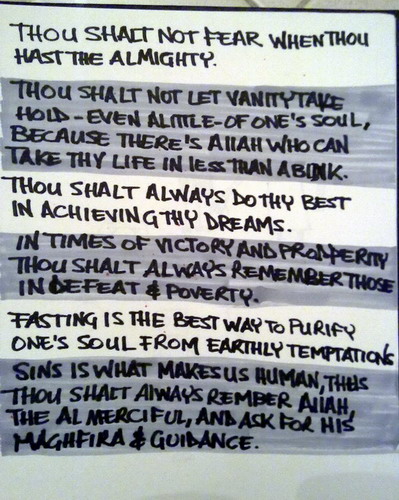 THOU SHALT NOT FEAR WHEN THOU
HAST THE ALMIGHTY.
THOU SHALT NOT LET VANITY TAKE
HOLD - EVEN A LITTLE - OF ONE'S SOUL,
BECAUSE THERE'S ALLAH WHO CAN
TAKE THY LIFE IN LESS THAN A BLINK.
THOU SHALT ALWAYS DO THY BEST
IN ACHIEVING THY DREAMS.
IN TIMES OF VICTORY AND PROSPERITY
THOU SHALT ALWAYS REMEMBER THOSE
IN DEFEAT & POVERTY.
FASTING IS THE BEST WAY TO PURIFY
ONE'S SOUL FROM EARTHLY TEMPTATIONS
SINS IS WHAT MAKES US HUMAN,
THOU SHALT ALWAYS REMBER ALLAH,
THE AL MERCIFUL, AND ASK FOR HIS
MAGHFIRA & GUIDANCE.